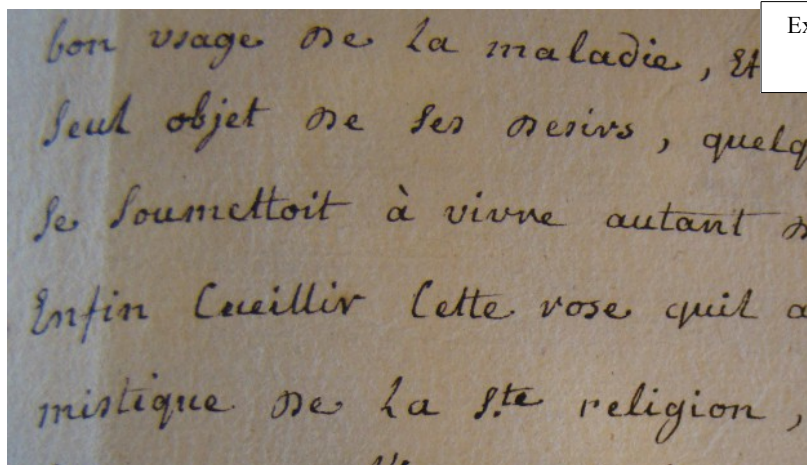 Ex
bon usage de la maladie, Et
seul objet de ses desirs, quelq
se soumettoit à vivre autant d
Enfin Cueillir Cette rose quil a
mistique de la S.te religion,